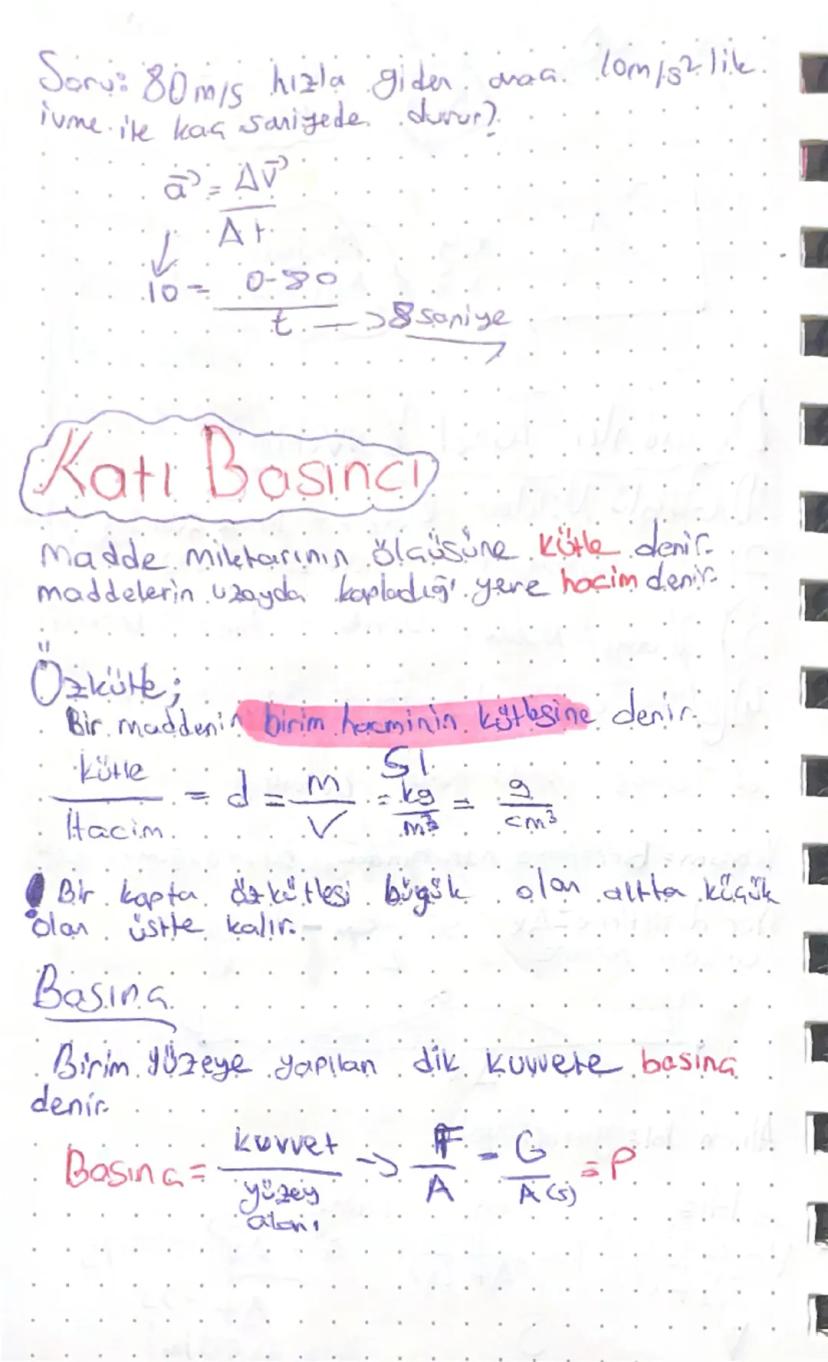 Soru: 80m/s hızla giden araç 10m/s² lik
ivme ile kaç saniyede durur?
a = ΔV
Δt
10 = 0-80
t → 8 saniye
Katı Basıncı
Madde miktarının ölçüsüne kütle denir.
maddelerin uzayda kapladığı yere hacim denir.
Özkütle;
Bir maddenin birim hacminin kütlesine denir.
SI
kütle = d = m = kg = g
Hacim V m³ cm³
Bir kapta özkütlesi büyük olan altta küçük
olan üstte kalır.
Basınç
Birim yüzeye yapılan dik kuvvete basınç
denir.
Basınç = kuvvet → F = G = P
yüzey A A(s)
alanı